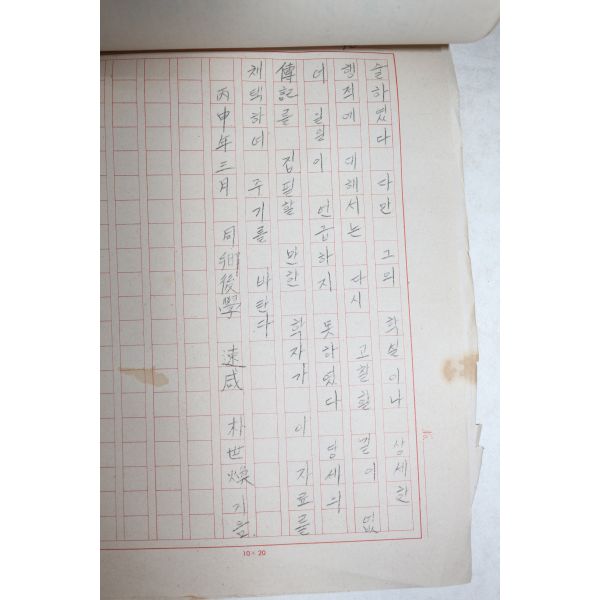 술하였다 다만 그의 학설이나 상세한
행적에 대해서는 다시 고찰할 길이 없
어 일일이 언급하지 못하였다 당세의
傳記를 집필할 만한 학자가 이 자료를
채택하여 주기를 바란다
丙申年 三月 同鄕後學 速咸 朴世煥 기음
10×20